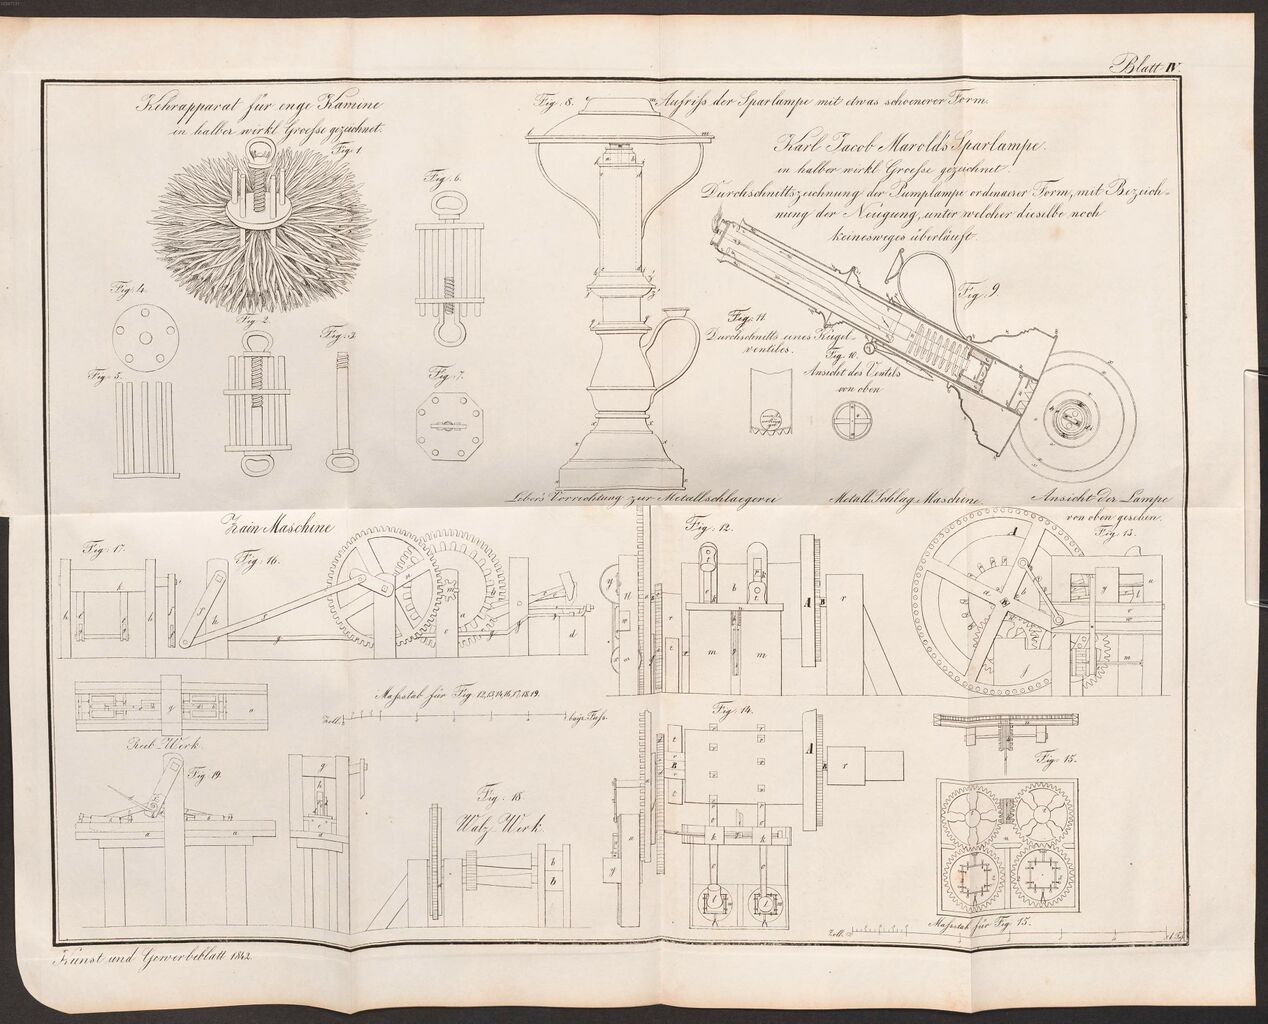 Blatt IV.
Kehrapparat für enge Kamine
in halber wirkl. Groesse gezeichnet.
Fig. 1.
Fig. 6.
Fig. 4.
Fig. 2.
Fig. 3.
Fig. 5.
Fig. 7.
Fig. 8. Aufriss der Sparlampe mit etwas schoenerer Form.
Karl Jacob Marold's Sparlampe.
in halber wirkl. Groesse gezeichnet.
Durchschnittszeichnung der Pumplampe ordinaerer Form, mit Bezeich-
nung der Neigung, unter welcher dieselbe noch
keineswegs überläuft.
Fig. 9.
Fig. 11.
Durchschnitts eines Kugel-
ventiles.
Fig. 10.
Ansicht des Ventils
von oben
Ansicht der Lampe
von oben gesehen.
Zain Maschine
Fig. 17.
Fig. 16.
Vorrichtung zur Metallschlaegerei
Metall Schlag Maschine.
Fig. 12.
Fig. 13.
Maßstab für Fig. 12,13,14,16,17,18,19.
Zoll.
1 bayr. Fuss.
Fig. 14.
Fig. 15.
Reib-Werk.
Fig. 19.
Fig. 18.
Walz Werk.
Massstab für Fig. 15.
Zoll.
Kunst und Gewerbeblatt 1842.